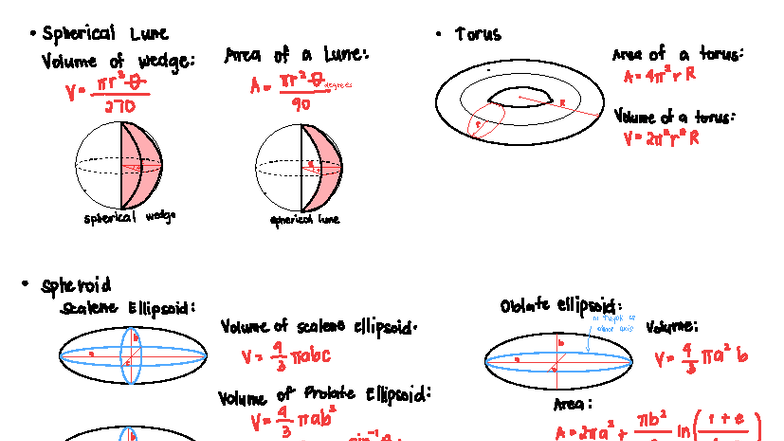 • Spherical Lune
Volume of wedge:
V = πr³θ / 270
Area of a Lune:
A = πr²θ degrees / 90
spherical wedge
spherical lune
• Torus
R
r
Area of a torus:
A = 4π²rR
Volume of a torus:
V = 2π²r²R
• Spheroid
Scalene Ellipsoid:
a
b
c
Volume of scalene ellipsoid.
V = 4/3 πabc
Volume of Prolate Ellipsoid:
V = 4/3 πab²
sin⁻¹
Oblate ellipsoid:
minor axis
a
b
a
Volume:
V = 4/3 πa²b
Area:
A = 2πa² + πb² ln(1+e